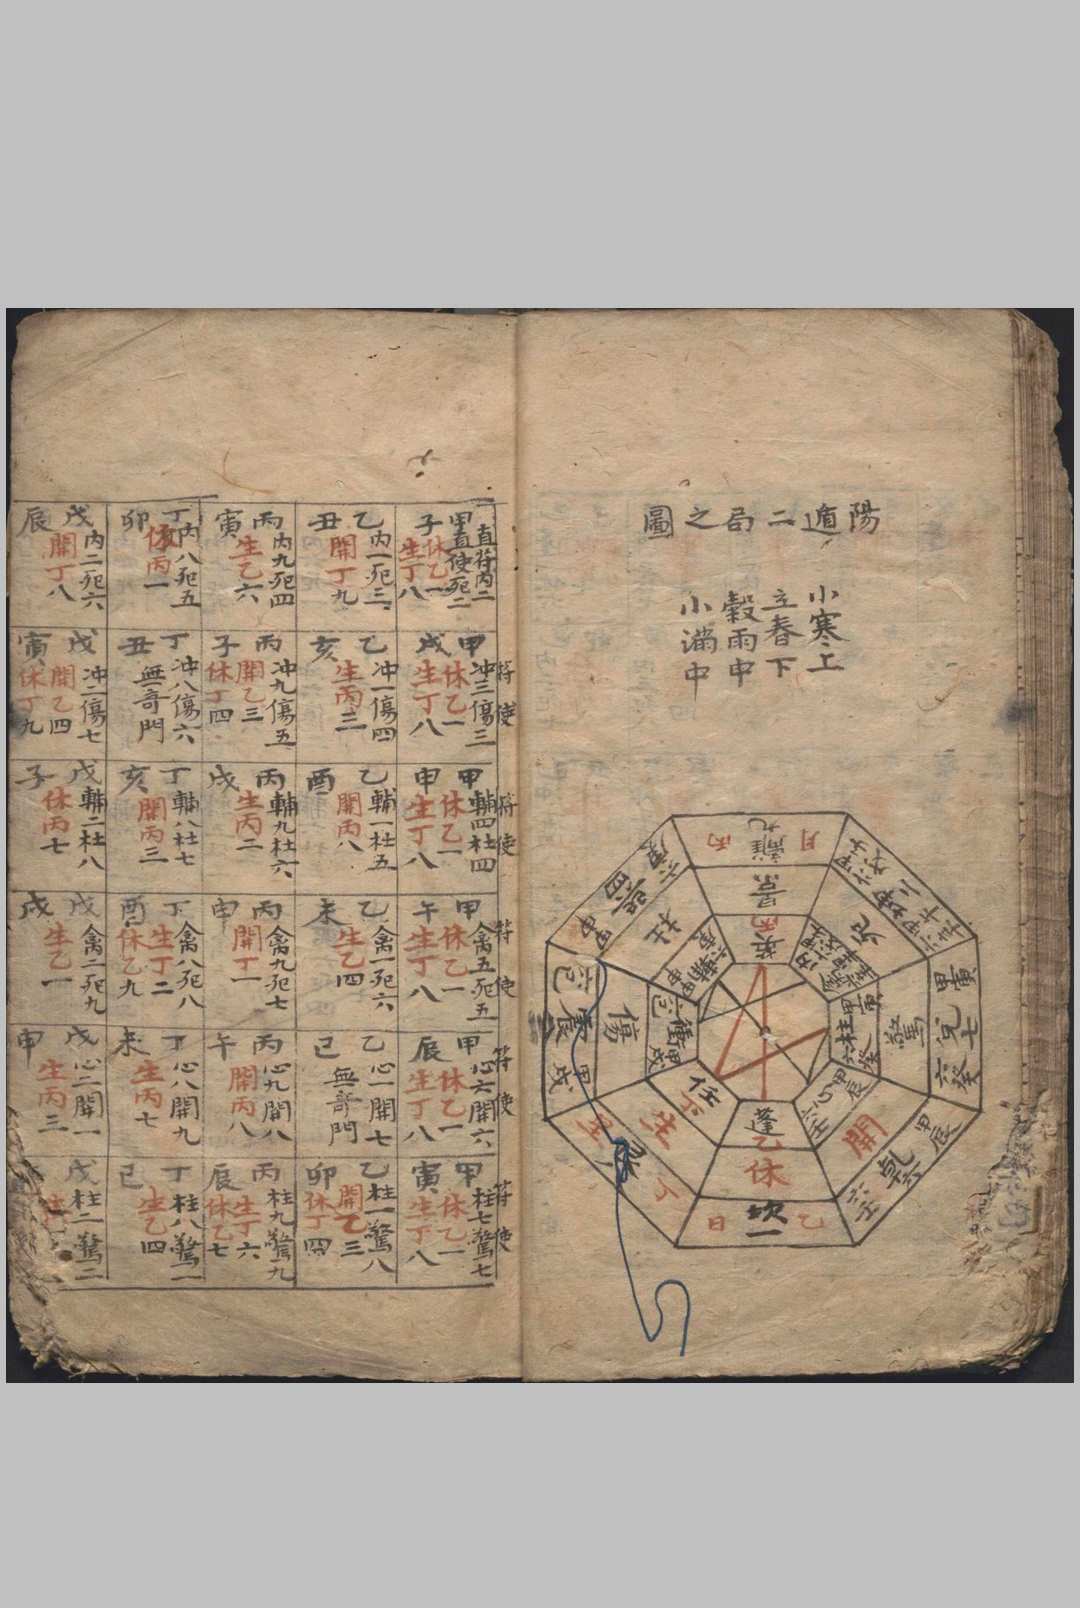 陽遁二局之圖
小寒上
立春下
穀雨中
小滿中
月 離九 丙
景
丙英
死
驚
開
乙休
生
傷
杜
兌七
乾六
日 坎一 乙
蓬
任
直符內二
甲子
直使死二
休乙一
生丁八
乙丑
內一死三
開丁九
丙寅
內九死四
生乙六
丁卯
內八死五
休丙一
戊辰
內二死六
開丁八
符使
甲戌
冲三傷三
休乙一
生丁八
乙亥
冲一傷四
生丙三
丙子
冲九傷五
開乙三
休丁四
丁丑
冲八傷六
無奇門
戊寅
冲二傷七
開乙四
休丁九
符使
甲申
輔四杜四
休乙一
生丁八
乙酉
輔一杜五
開丙八
丙戌
輔九杜六
生丙二
丁亥
輔八杜七
開丙三
戊子
輔二杜八
休丙七
符使
甲午
禽五死五
休乙一
生丁八
乙未
禽一死六
生乙四
丙申
禽九死七
開丁一
丁酉
禽八死八
生丁二
休乙九
戊戌
禽二死九
生乙一
符使
甲辰
心六開六
休乙一
生丁八
乙巳
心一開七
無奇門
丙午
心九開八
開丙八
丁未
心八開九
生丙七
戊申
心二開一
生丙三
符使
甲寅
柱七驚七
休乙一
生丁八
乙卯
柱一驚八
開乙三
休丁四
丙辰
柱九驚九
生丁六
休乙七
丁巳
柱八驚一
生乙四
戊
柱二驚二